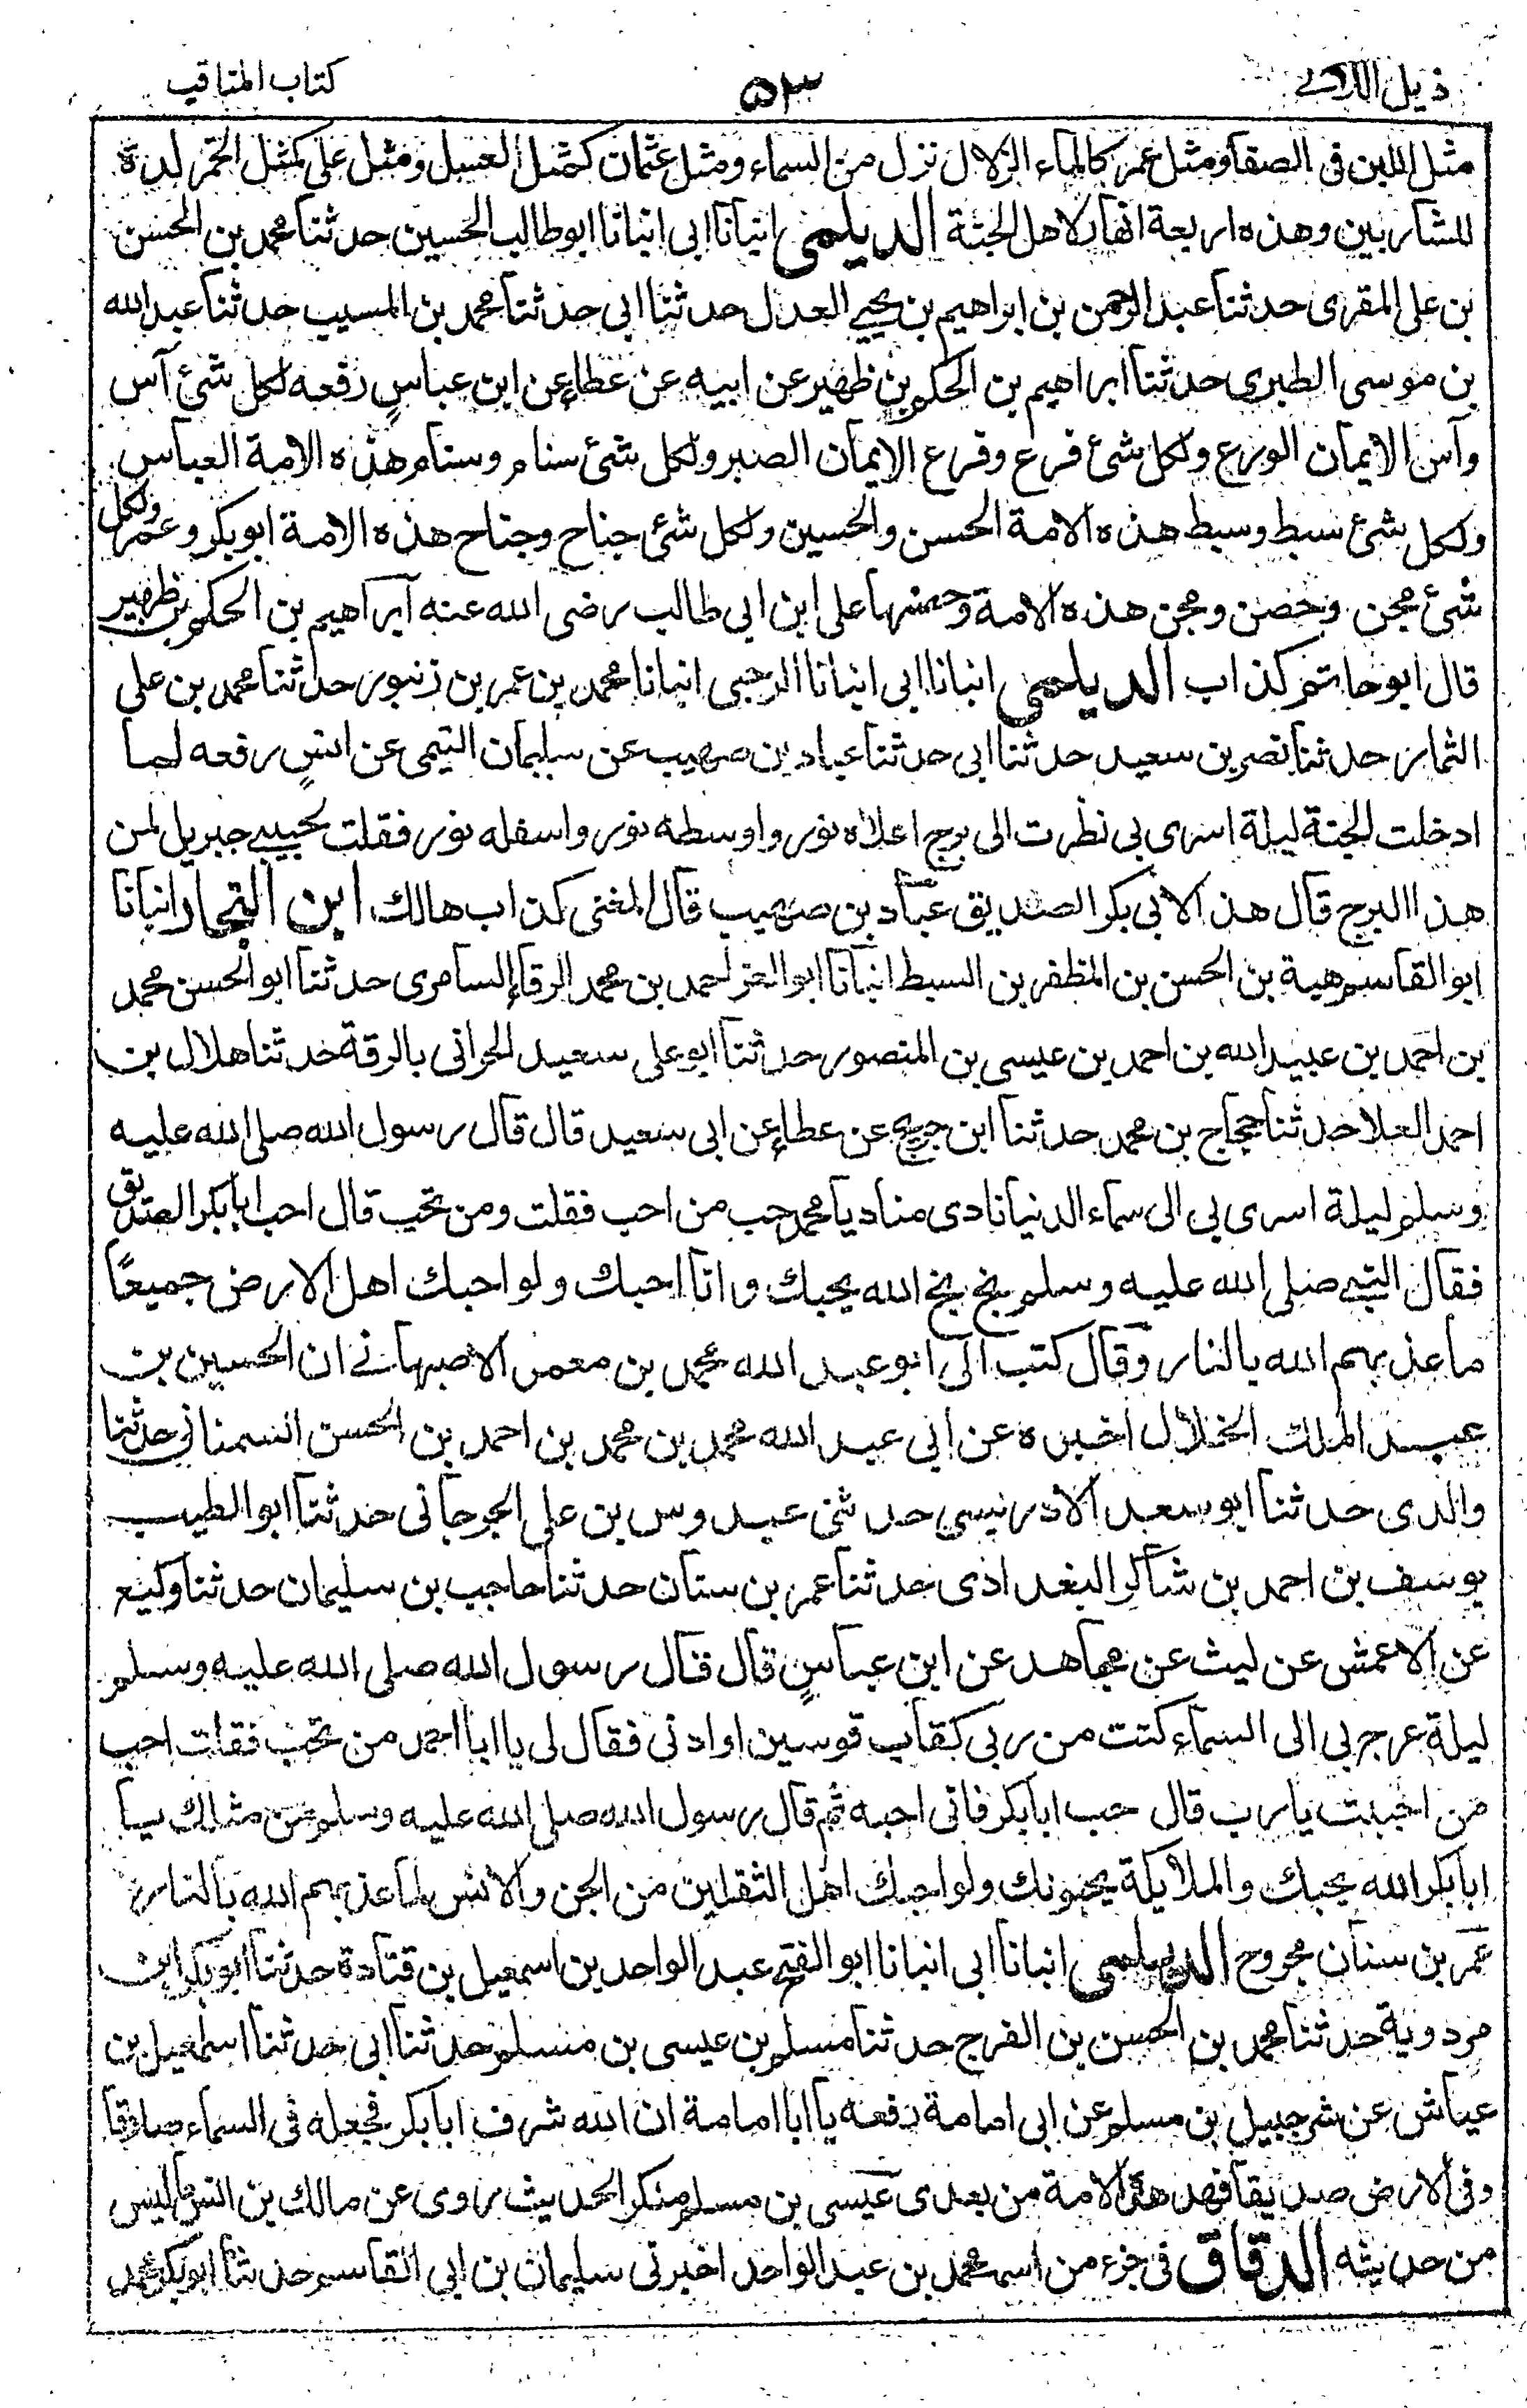 ذيل اللآلي ٥٣ كتاب المناقب
مثل اللبن فى الصفا ومثل عمر كالماء الزلال نزل من السماء ومثل عثمان كمثل العسل ومثل على كمثل الخمر لذة
للشاربين وهذه اربعة انهار لاهل الجنة الديلمى انبانا ابى انبانا ابو طالب الحسين حدثنا محمد بن الحسن
بن على المقرى حدثنا عبد الرحمن بن ابراهيم بن يحيے العدل حدثنا ابى حدثنا محمد بن المسيب حدثنا عبد الله
بن موسى الطبرى حدثنا ابراهيم بن الحكم بن ظهير عن ابيه عن عطاء عن ابن عباس رفعه لكل شئ آس
وآس الايمان الورع ولكل شئ فرع وفرع الايمان الصبر ولكل شئ سنام وسنام هذه الامة العباس
ولكل شئ سبط وسبط هذه الامة الحسن والحسين ولكل شئ جناح وجناح هذه الامة ابو بكر وعمر ولكل
شئ مجن وحصن ومجن هذه الامة وحصنها على ابن ابى طالب رضى الله عنه ابراهيم بن الحكم بن ظهير
قال ابو حاتم كذاب الديلمى انبانا ابى انبانا الرحبى انبانا محمد بن عمر بن زنبور حدثنا محمد بن على
الثمار حدثنا نصر بن سعيد حدثنا ابى حدثنا عباد بن صهيب عن سليمان التيمى عن انس رفعه لما
ادخلت الجنة ليلة اسرى بى نظرت الى برج اعلاه نور واوسطه نور واسفله نور فقلت لحبيبے جبريل لمن
هذا البرج قال هذا لابى بكر الصديق عباد بن صهيب قال المغنى كذاب هالك ابن النجار انبانا
ابو القاسم هبة بن الحسن بن المظفر بن السبط انبانا ابو العز احمد بن محمد الرقاء السامرى حدثنا ابو الحسن محمد
بن احمد بن عبيد الله بن احمد بن عيسى بن المنصور حدثنا ابو على سعيد الحرانى بالرقة حدثنا هلال بن
احمد العلا حدثنا حجاج بن محمد حدثنا ابن جريج عن عطاء عن ابى سعيد قال قال رسول الله صلى الله عليه
وسلم ليلة اسرى بى الى سماء الدنيا نادى مناد يا محمد حب من احب فقلت ومن تحب قال احب ابا بكر الصديق
فقال النبے صلى الله عليه وسلم بخ بخ الله يحبك وانا احبك ولو احبك اهل الارض جميعًا
ما عذبهم الله بالنار وقال كتب الى ابو عبد الله محمد بن معمر الاصبهانے ان الحسين بن
عبد الملك الخلال اخبره عن ابى عبد الله محمد بن محمد بن احمد بن الحسن السمنانى حدثنا
والدى حدثنا ابو سعد الادريسى حدثنى عبدوس بن على الجرجانى حدثنا ابو الطيب
يوسف بن احمد بن شاكر البغداذى حدثنا عمر بن سنان حدثنا حاجب بن سليمان حدثنا وكيع
عن الاعمش عن ليث عن مجاهد عن ابن عباس قال قال رسول الله صلى الله عليه وسلم
ليلة عرج بى الى السماء كنت من ربى كقاب قوسين او ادنى فقال لى يا ابا احمد من تحب فقلت احب
من احببت يا رب قال حب ابا بكر فانى احبه ثم قال رسول الله صلى الله عليه وسلم من مثلك يا
ابا بكر الله يحبك والملايكة يحبونك ولو احبك اهل الثقلين من الجن والانس لما عذبهم الله بالنار
عمر بن سنان مجروح الديلمى انبانا ابى انبانا ابو الفتح عبد الواحد بن اسمعيل بن قتادة حدثنا ابو بكر ابن
مردوية حدثنا محمد بن الحسن بن الفرج حدثنا مسلم بن عيسى بن مسلم حدثنا ابى حدثنا اسمعيل بن
عياش عن شرحبيل بن مسلم عن ابى امامة رفعه يا ابا امامة ان الله شرف ابا بكر فجعله فى السماء صادقا
وفى الارض صديقا فهو هدى الامة من بعدى عيسى بن مسلم منكر الحديث روى عن مالك بن انس ما ليس
من حديثه الدقاق فى جزء من اسمه محمد بن عبد الواحد اخبرنى سليمان بن ابى القاسم حدثنا ابو بكر محمد